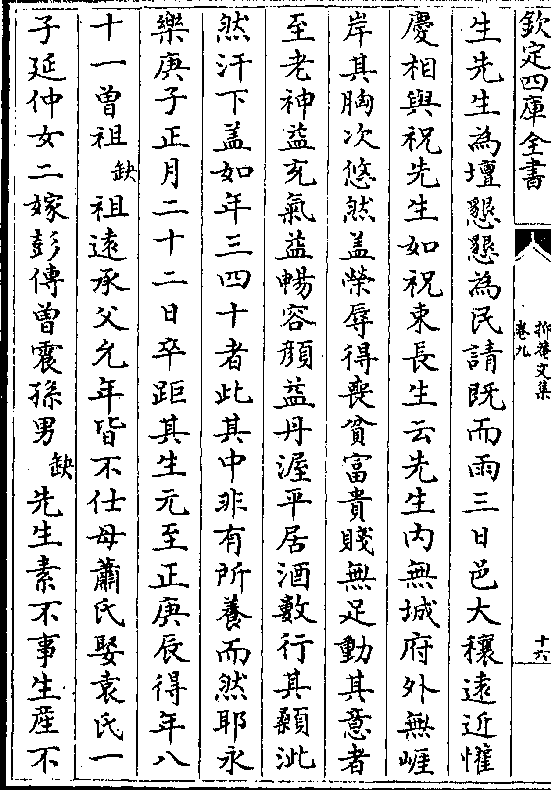 欽定四庫全書
抑菴文集
卷九
十六
生先生為壇懇懇為民請既而雨三日邑大穰遠近懽
慶相與祝先生如祝東長生云先生内無城府外無崕
岸其胸次悠然盖榮辱得喪貧富貴賤無足動其意者
至老神益充氣益暢容顔益丹渥平居酒數行其顙泚
然汗下盖如年三四十者此其中非有所養而然耶永
樂庚子正月二十二日卒距其生元至正庚辰得年八
十一曾祖缺祖遠承父允年皆不仕母蕭氏娶袁氏一
子延仲女二嫁彭傳曾震孫男缺先生素不事生産不